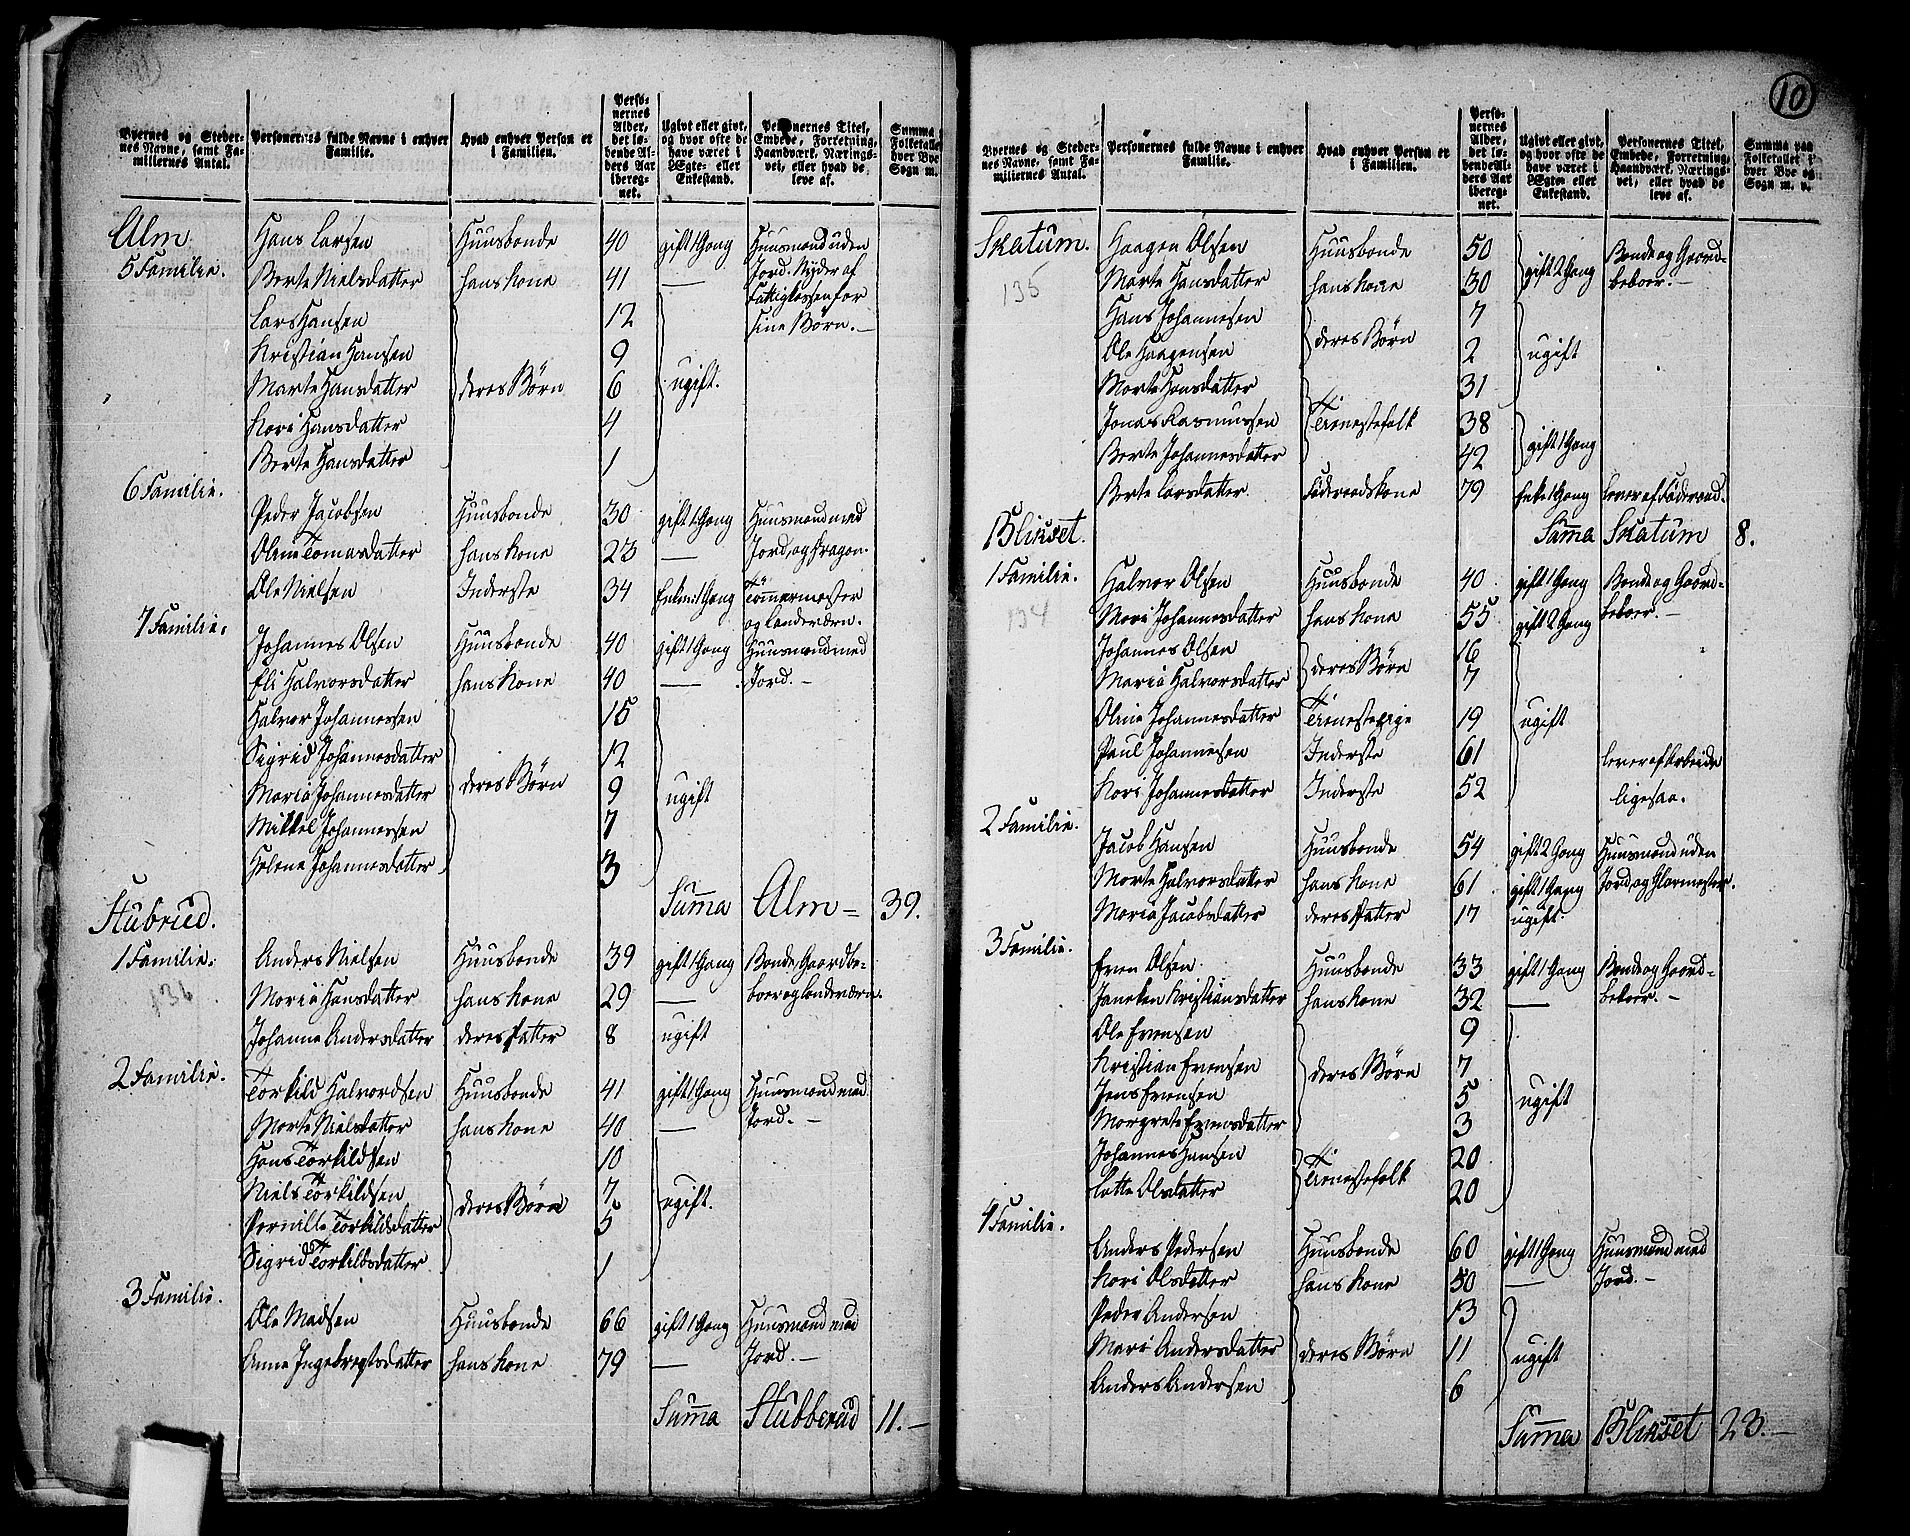 Byernes og Steder-
nes Navne, samt Fa-
miliernes Antal.
Personernes fulde Navne i enhver
Familie.
Hvad enhver Person er
i Familien.
Perso-
nernes
Alder,
det lø-
bende Al-
ders Aar
ibereg-
net.
Ugivt eller givt,
og hvor ofte de
have været i
Ægte- eller
Enkestand.
Personernes Titel,
Embede, Forretning,
Haandværk, Nærings-
vei, eller hvad de
leve af.
Summa
Folketallet
hver Bye
Sogn m.
Alm
5 Familie.
Hans Larsen Huusbonde 40 gift 1 Gang Huusmand uden
Berte Nielsdatter hans Kone 41 — Jord. Nyder af
Lars Hansen 12 Fattigkassen for
sine Børn. —
Kristian Hansen 9
Marte Hansdatter deres Børn 6 ugift.
Kari Hansdatter 4
Berte Hansdatter 1
6 Familie.
Peder Jacobsen Huusbonde 30 gift 1 Gang Huusmand med
Oline Tomasdatter hans Kone 23 — Jord, og Dragon.
Ole Nielsen Inderste 34 Enkem: 1 Gang Tömmermester
og Landeværn.
7 Familie.
Johannes Olsen Huusbonde 40 gift 1 Gang Huusmand med
Eli Halvorsdatter hans Kone 40 — Jord. —
Halvor Johannessen 15
Sigrid Johannesdatter 12
Maria Johannesdatter deres Børn 9 ugift
Mikkel Johannessen 7
Helene Johannesdatter 3
Summa Alm = 39.
Stubrud.
1 Familie.
136
Anders Nielsen Huusbonde 39 gift 1 Gang Bonde, Gaardbe-
Maria Hansdatter hans Kone 29 — boer og landeværn.
Johanne Andersdatter deres Datter 8 ugift
2 Familie.
Torkild Halvordsen Huusbonde 41 gift 1 Gang Huusmand med
Marte Nielsdatter hans Kone 40 — Jord. —
Hans Torkildsen 10
Niels Torkildsen deres Børn 7 ugift.
Pernille Torkildsdatter 5
Sigrid Torkildsdatter 1
3 Familie.
Ole Madsen Huusbonde 66 gift 1 Gang Huusmand med
Anne Ingebregtsdatter hans Kone 79 — Jord. —
Summa Stubberud 11. —
10
Byernes og Steder-
nes Navne, samt Fa-
miliernes Antal.
Personernes fulde Navne i enhver
Familie.
Hvad enhver Person er
i Familien.
Perso-
nernes
Alder,
det lø-
bende Al-
ders Aar
ibereg-
net.
Ugivt eller givt,
og hvor ofte de
have været i
Ægte- eller
Enkestand.
Personernes Titel,
Embede, Forretning,
Haandværk, Nærings-
vei, eller hvad de
leve af.
Summa paa
Folketallet i
hver Bye og
Sogn m. v.
Skatum.
135
Haagen Olsen Huusbonde 50 gift 2 Gang Bonde og Gaard-
Marte Hansdatter hans Kone 30 beboer. —
Hans Johannesen deres Børn 7
Ole Haagensen 2 ugift
Marte Hansdatter 31
Jonas Rasmussen Tienestefolk 38 gift 1 Gang
Berte Johannesdatter 42
Berte Larsdatter Föderaadskone 79 Enke 1 Gang lever af Föderaad.
Summa Skatum 8.
Blikset.
1 Familie.
134
Halvor Olsen Huusbonde 40 gift 1 Gang Bonde og Gaard-
Mari Johannesdatter hans Kone 55 gift 2 Gang beboer. —
Johannes Olsen deres Børn 16
Maria Halvorsdatter 7
Oline Johannesdatter Tienestepige 19 ugift
Paul Johannesen Inderste 61 lever af Arbeide
Kari Johannesdatter Inderste 52 ligesaa.
2 Familie.
Jacob Hansen Huusbonde 54 gift 2 Gang Huusmand uden
Marte Halvorsdatter hans Kone 61 gift 1 Gang Jord, og Glarmester.
Maria Jacobsdatter deres Datter 17 ugift.
3 Familie.
Even Olsen Huusbonde 33 gift 1 Gang Bonde og Gaard-
Janeken Kristiansdatter hans Kone 32 — beboer. —
Ole Evensen 9
Kristian Evensen deres Børn 7
Jens Evensen 5 ugift
Margrete Evensdatter 3
Johannes Hansen Tienestefolk 20
Lotte Olsdatter 20
4 Familie.
Anders Pedersen Huusbonde 60 gift 1 Gang Huusmand med
Kari Olsdatter hans Kone 50 — Jord. —
Peder Andersen 13
Mari Andersdatter deres Børn 11 ugift
Anders Andersen 6
Summa Blikset 23. —